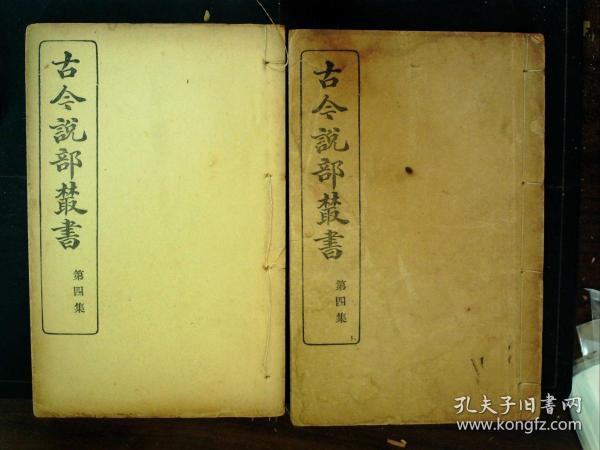 古今說部叢書
第四集
古今說部叢書
第四集
孔夫子旧书网
www.kongfz.com